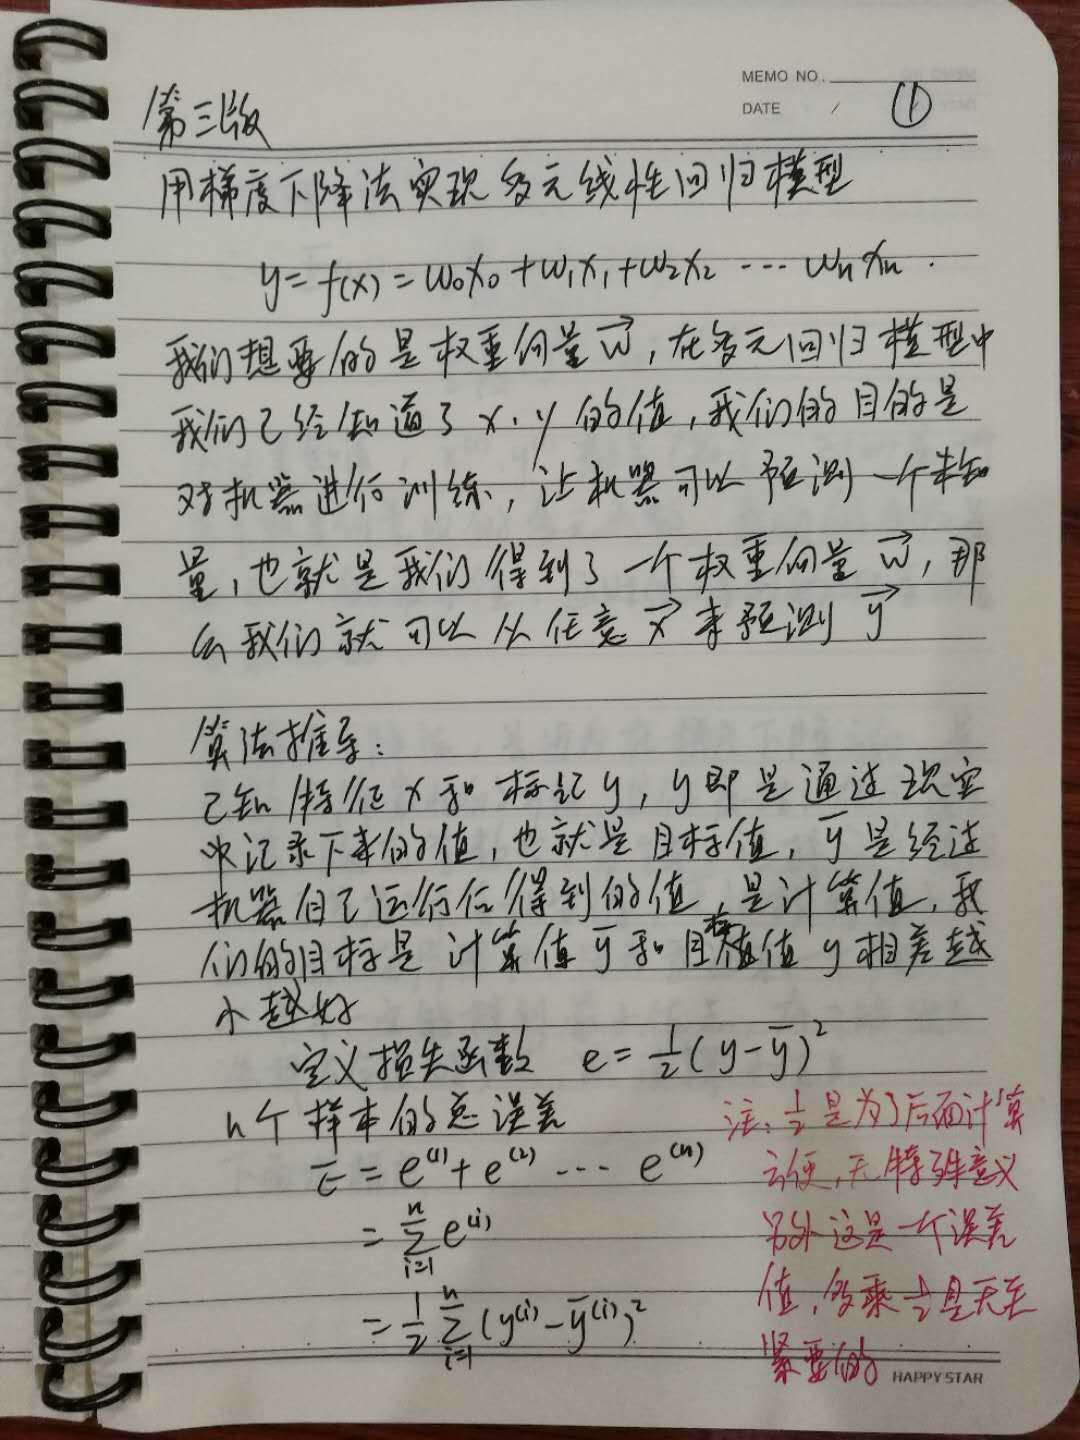 MEMO NO.
DATE / ①
第三版
用梯度下降法实现多元线性回归模型
y = f(x) = w₀x₀ + w₁x₁ + w₂x₂ ⋯ wₙxₙ.
我们想要的是权重向量 w⃗, 在多元回归模型中
我们已经知道了 x、y 的值, 我们的目的是
对机器进行训练, 让机器可以预测一个未知
量, 也就是我们得到了一个权重向量 w⃗, 那
么我们就可以从任意 x⃗ 来预测 y⃗
算法推导:
已知特征 x 和标记 y, y 即是通过现实
中记录下来的值, 也就是目标值, y̅ 是经过
机器自己运行后得到的值, 是计算值, 我
们的目标是计算值 y̅ 和目标值值 y 相差越
小越好
定义损失函数 e = ½(y - y̅)²
n个样本的总误差
E = e⁽¹⁾ + e⁽²⁾ ⋯ e⁽ⁿ⁾
= Σⁿᵢ₌₁ e⁽ⁱ⁾
= ½ Σⁿᵢ₌₁ (y⁽ⁱ⁾ - y̅⁽ⁱ⁾)²
注: ½是为了后面计算
方便, 无特殊意义
另外这是一个误差
值, 多乘½是无关
紧要的
HAPPY STAR